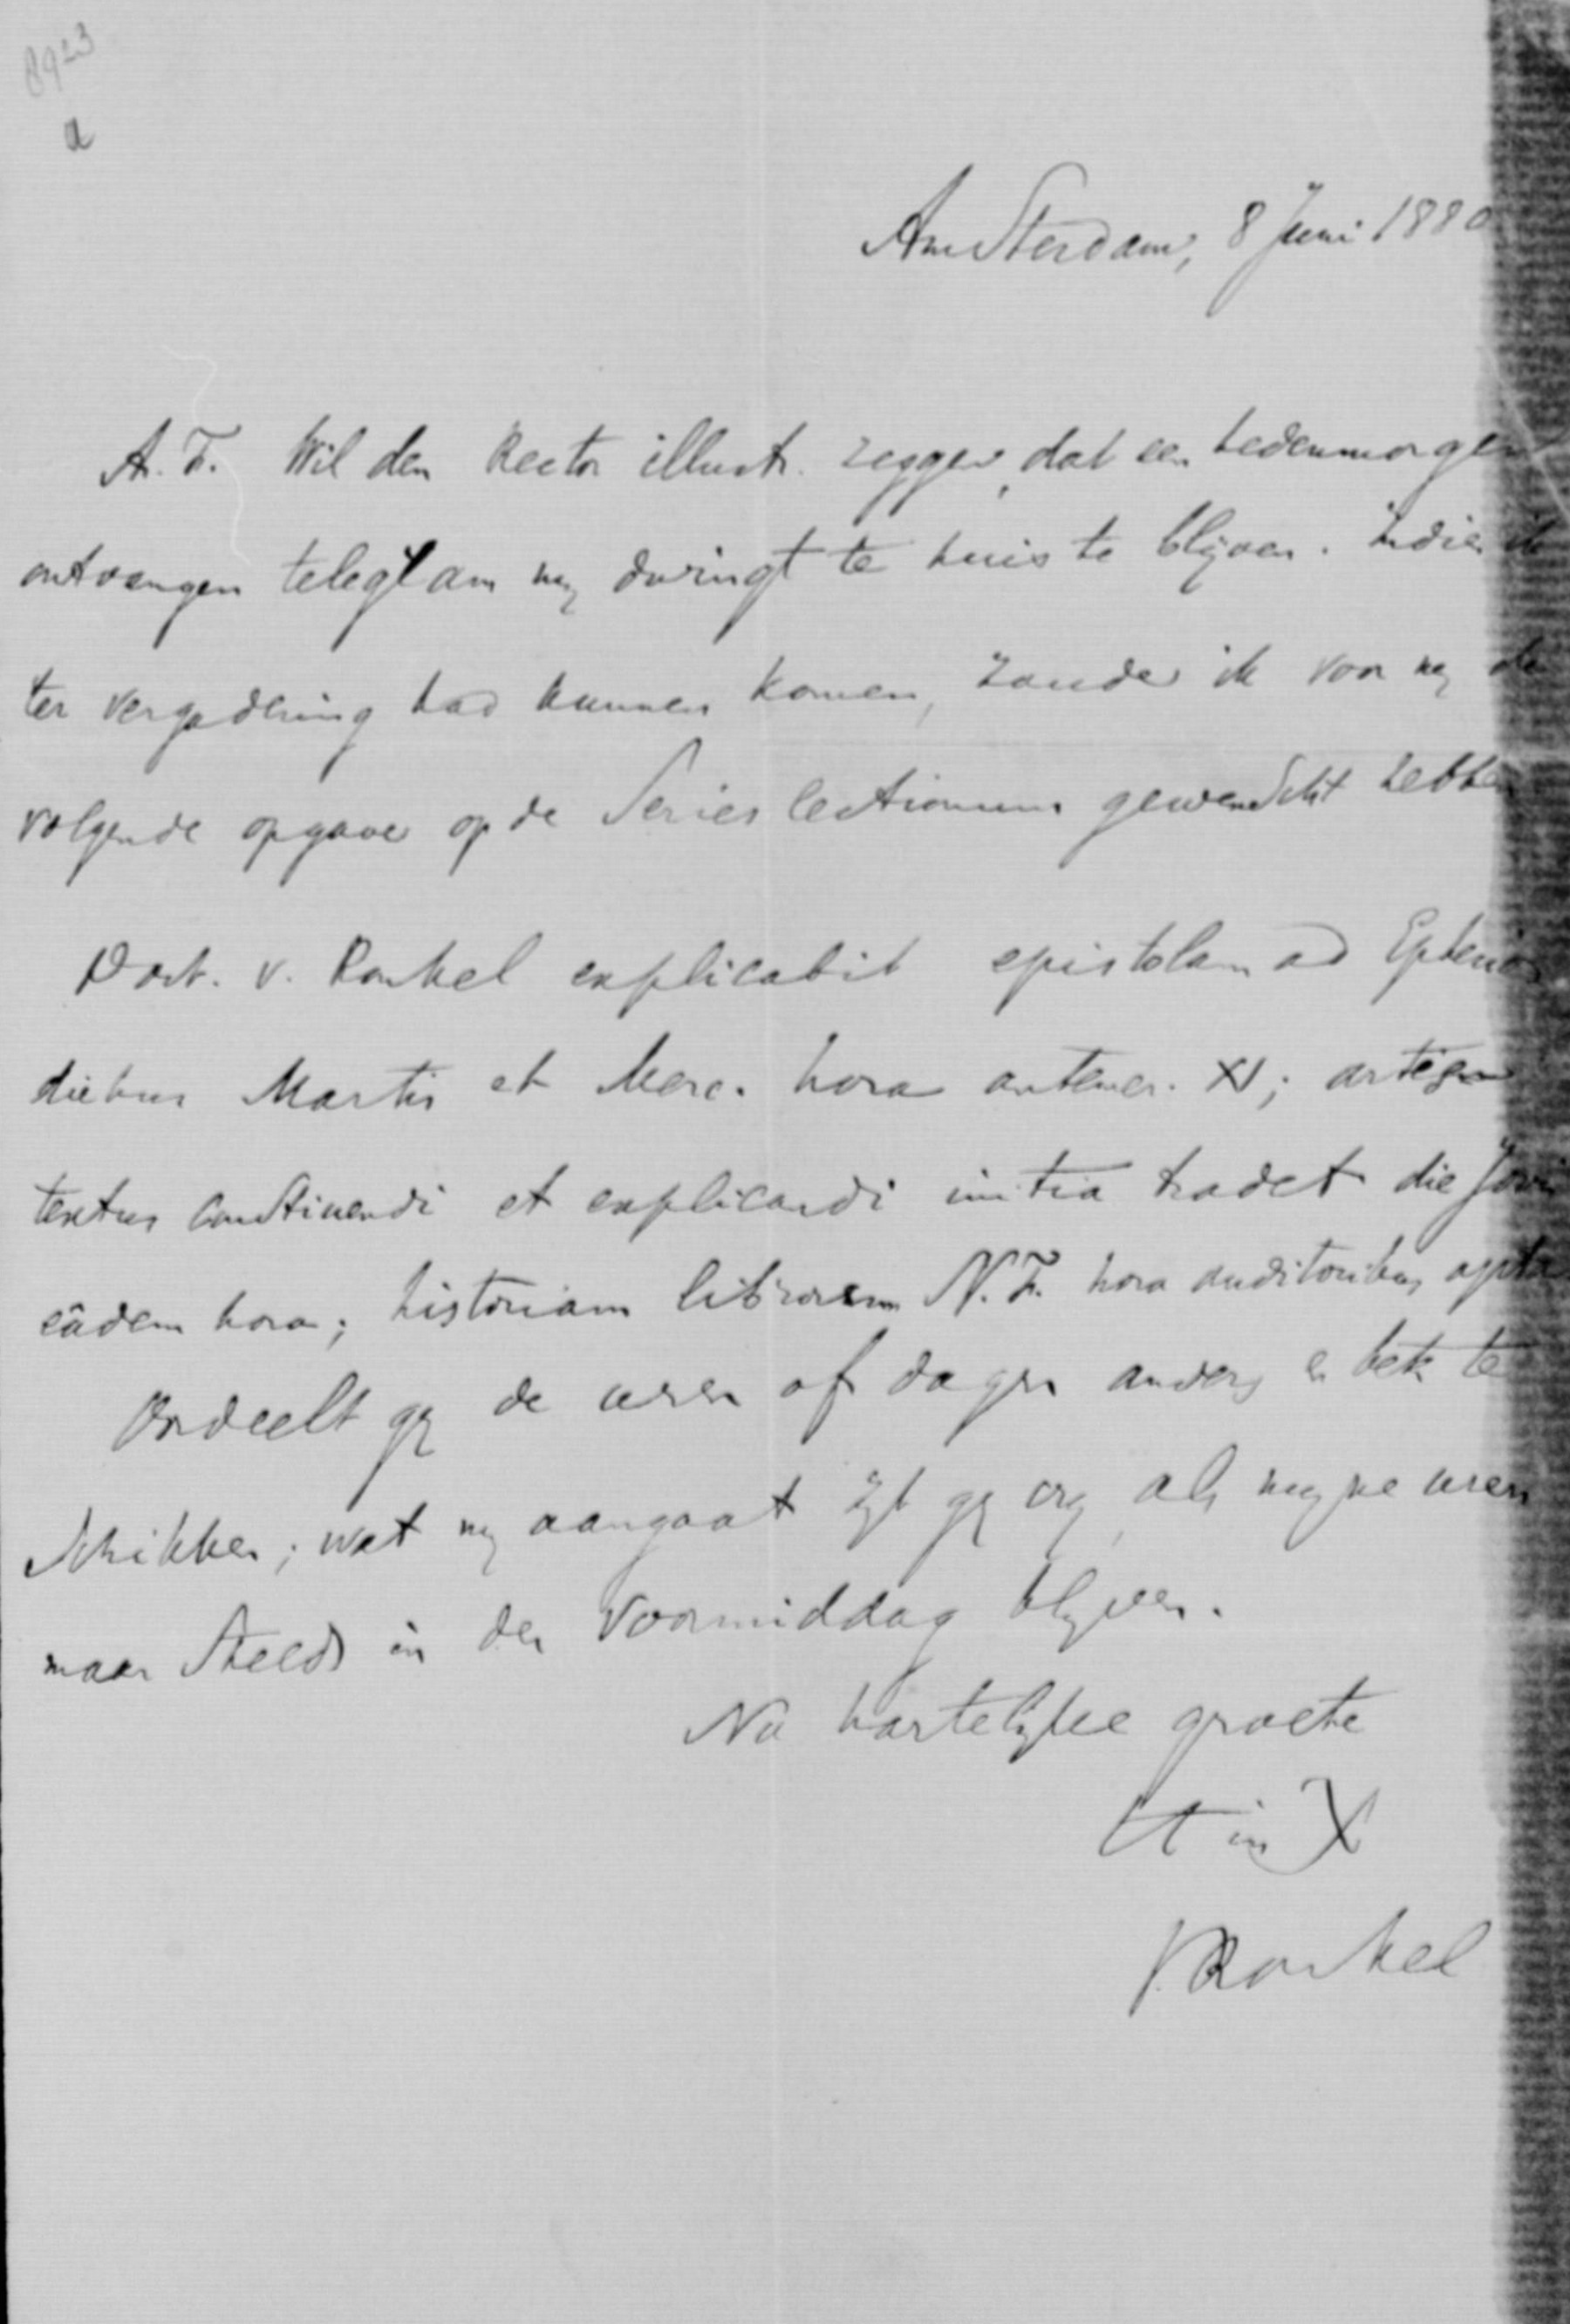 8923
a
Amsterdam, 8 Juni 1880
A. F. Wil den Rector illustr. zeggen, dat een hedenmorgen
ontvangen telegram mij dwingt te huis te blijven. Indien ik
ter vergadering had kunnen komen, zoude ik voor mij de
volgende opgave op de Series lectionum gewenscht hebben
Doct. v. Ronkel explicabit epistolam ad Ephesios
diebus Martis et Merc. hora antemer. XI; artem
textus constituendi et explicandi initia tradet die Jovis
eâdem hora; historiam librorum N.T. hora auditoribus apta
Oordeelt gij de uren of dagen anders te
schikken; wat mij aangaat zijt gij vrij, als mijne uren
maar steeds in den voormiddag blijven.
Na hartelijke groete
tt in X
v Ronkel